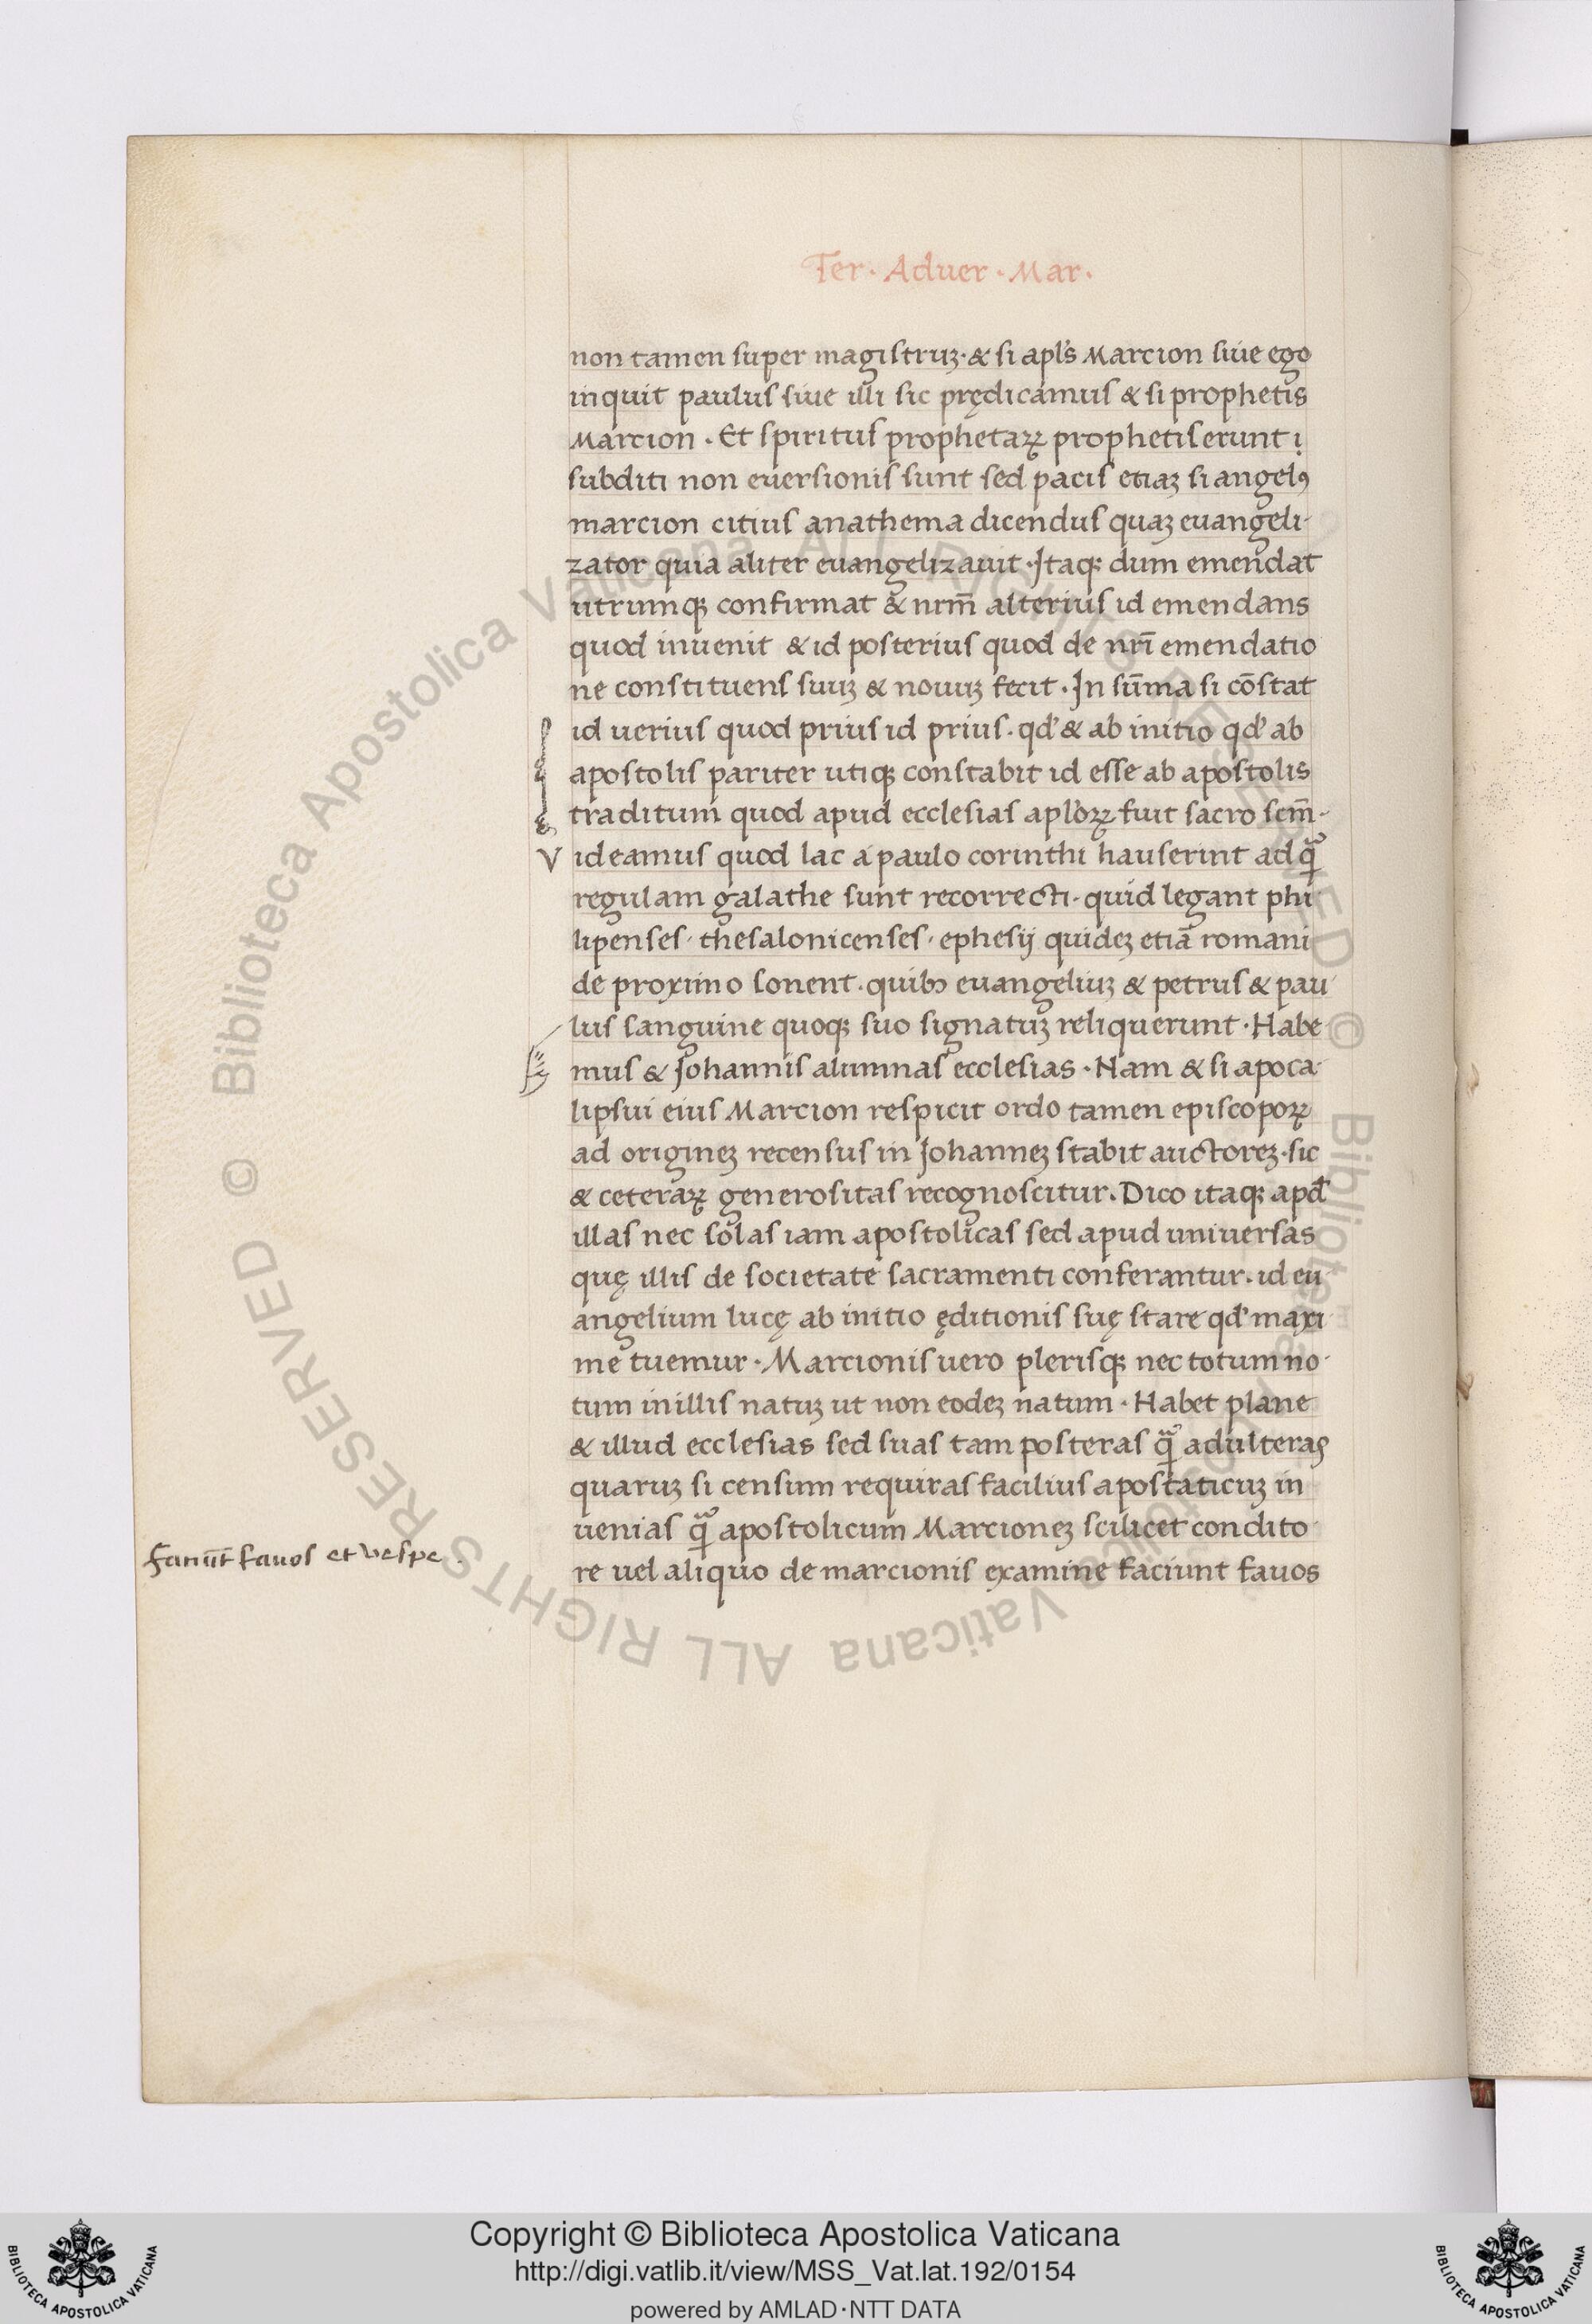 Ter. Aduer. Mar.
non tamen super magistruꝫ. & si apl's Marcion siue ego
inquit paulus siue illi sic prędicamus & si prophetis
Marcion. Et spiritus prophetaꝝ prophetis erunt
subditi non euersionis sunt sed pacis etiaꝫ si angelꝰ
marcion citius anathema dicendus quaꝫ euangeli-
zator quia aliter euangelizauit. Itaqꝫ dum emendat
utrumqꝫ confirmat & nrm̄ alterius id emendans
quod inuenit & id posterius quod de nrī emendatio
ne constituens suuꝫ & nouuꝫ fecit. In sūma si cōstat
id uerius quod prius id prius. qd' & ab initio qd' ab
apostolis pariter utiqꝫ constabit id esse ab apostolis
traditum quod apud ecclesias apl'oꝝ fuit sacro scm̄.
Videamus quod lac a paulo corinthi hauserint ad qͣ̄
regulam galathe sunt recorrecti. quid legant phi
lipenses. thesalonicenses. ephesij quideꝫ etiā romani
de proximo sonent. quibꝰ euangeliuꝫ & petrus & pau
lus sanguine quoqꝫ suo signatuꝫ reliquerunt. Habe
mus & Johannis alumnas ecclesias. Nam & si apoca-
lipsui eius Marcion respicit ordo tamen episcopoꝝ
ad origineꝫ recensus in Johanneꝫ stabit auctoreꝫ. sic
& ceteraꝝ generositas recognoscitur. Dico itaqꝫ apd'
illas nec solas iam apostolicas sed apud uniuersas
quę illis de societate sacramenti conferantur. id eu
angelium lucę ab initio ęditionis suę stare qd' maxi
me tuemur. Marcionis uero plerisqꝫ nec totum no-
tum in illis natuꝫ ut non eodeꝫ natum. Habet plane
& illud ecclesias sed suas tam posteras qͣ̄ adulteras
quaruꝫ si censum requiras facilius apostaticuꝫ in
uenias qͣ̄ apostolicum Marcioneꝫ scilicet condito
Faciūt fauos et vespe.
re uel aliquo de marcionis examine faciunt fauos
© Biblioteca Apostolica Vaticana ALL RIGHTS RESERVED © Biblioteca Apostolica Vaticana ALL RIGHTS RESERVED
Copyright © Biblioteca Apostolica Vaticana
http://digi.vatlib.it/view/MSS_Vat.lat.192/0154
powered by AMLAD·NTT DATA
BIBLIOTECA APOSTOLICA VATICANA
BIBLIOTECA APOSTOLICA VATICANA